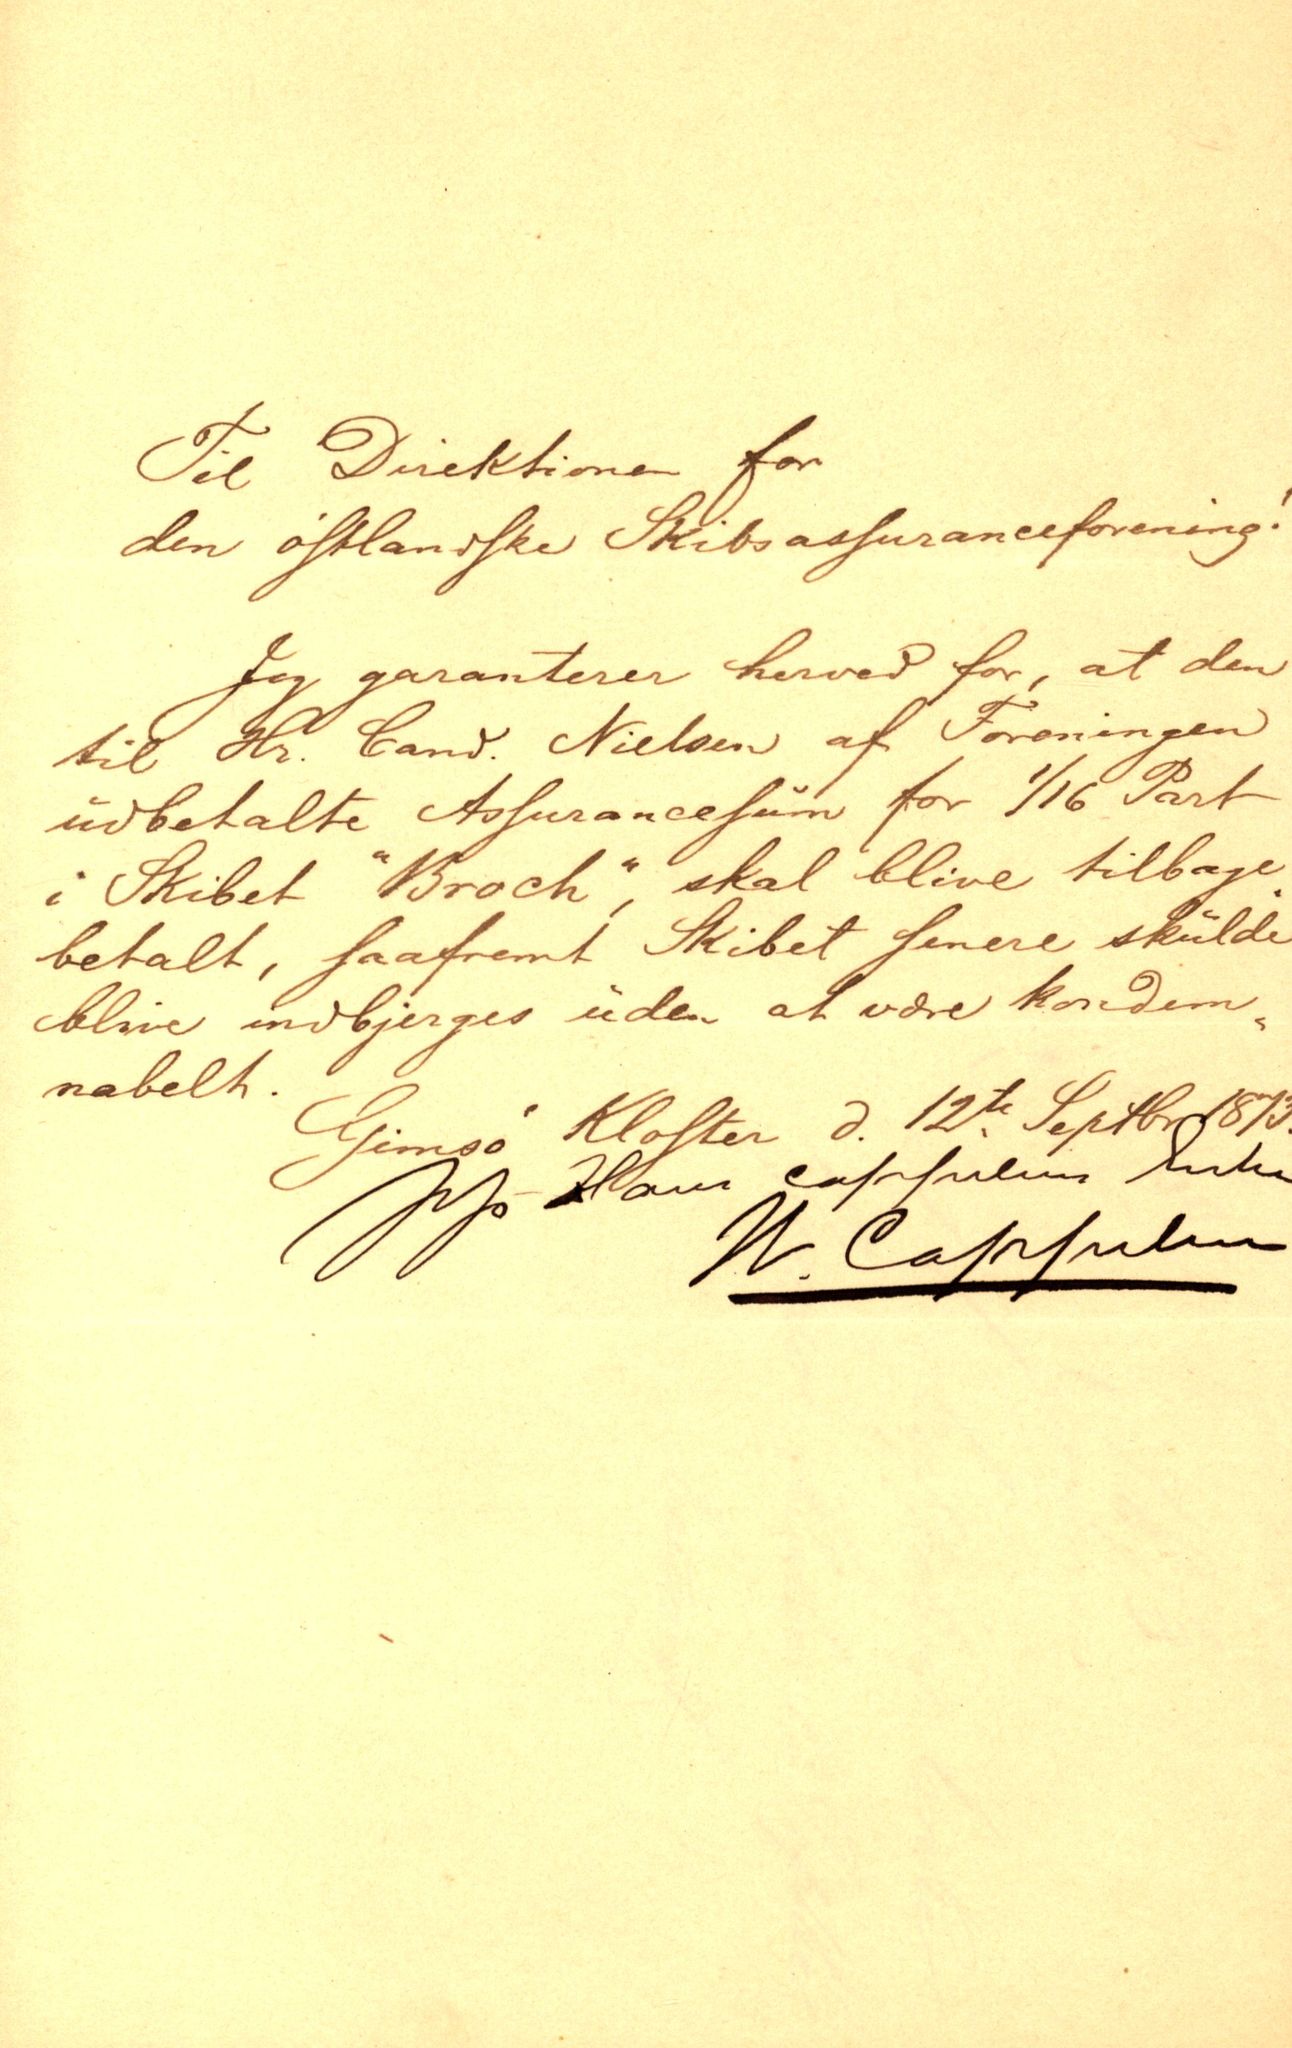 Til Direktionen for
den östlandske Skibsassuranceforening!
Jeg garanterer herved for, at den
til Hr. Cand. Nielsen af Foreningen
üdbetalte Assurancesüm for 1/16 Part
i Skibet "Broch", skal blive tilbage-
betalt, saafremt Skibet senere skülde
blive indbjerges üden at være kondem-
nabelt.
Gjemsö Kloster d. 12te Septbr 1873.
pp Hans Cappelen
W. Cappelen